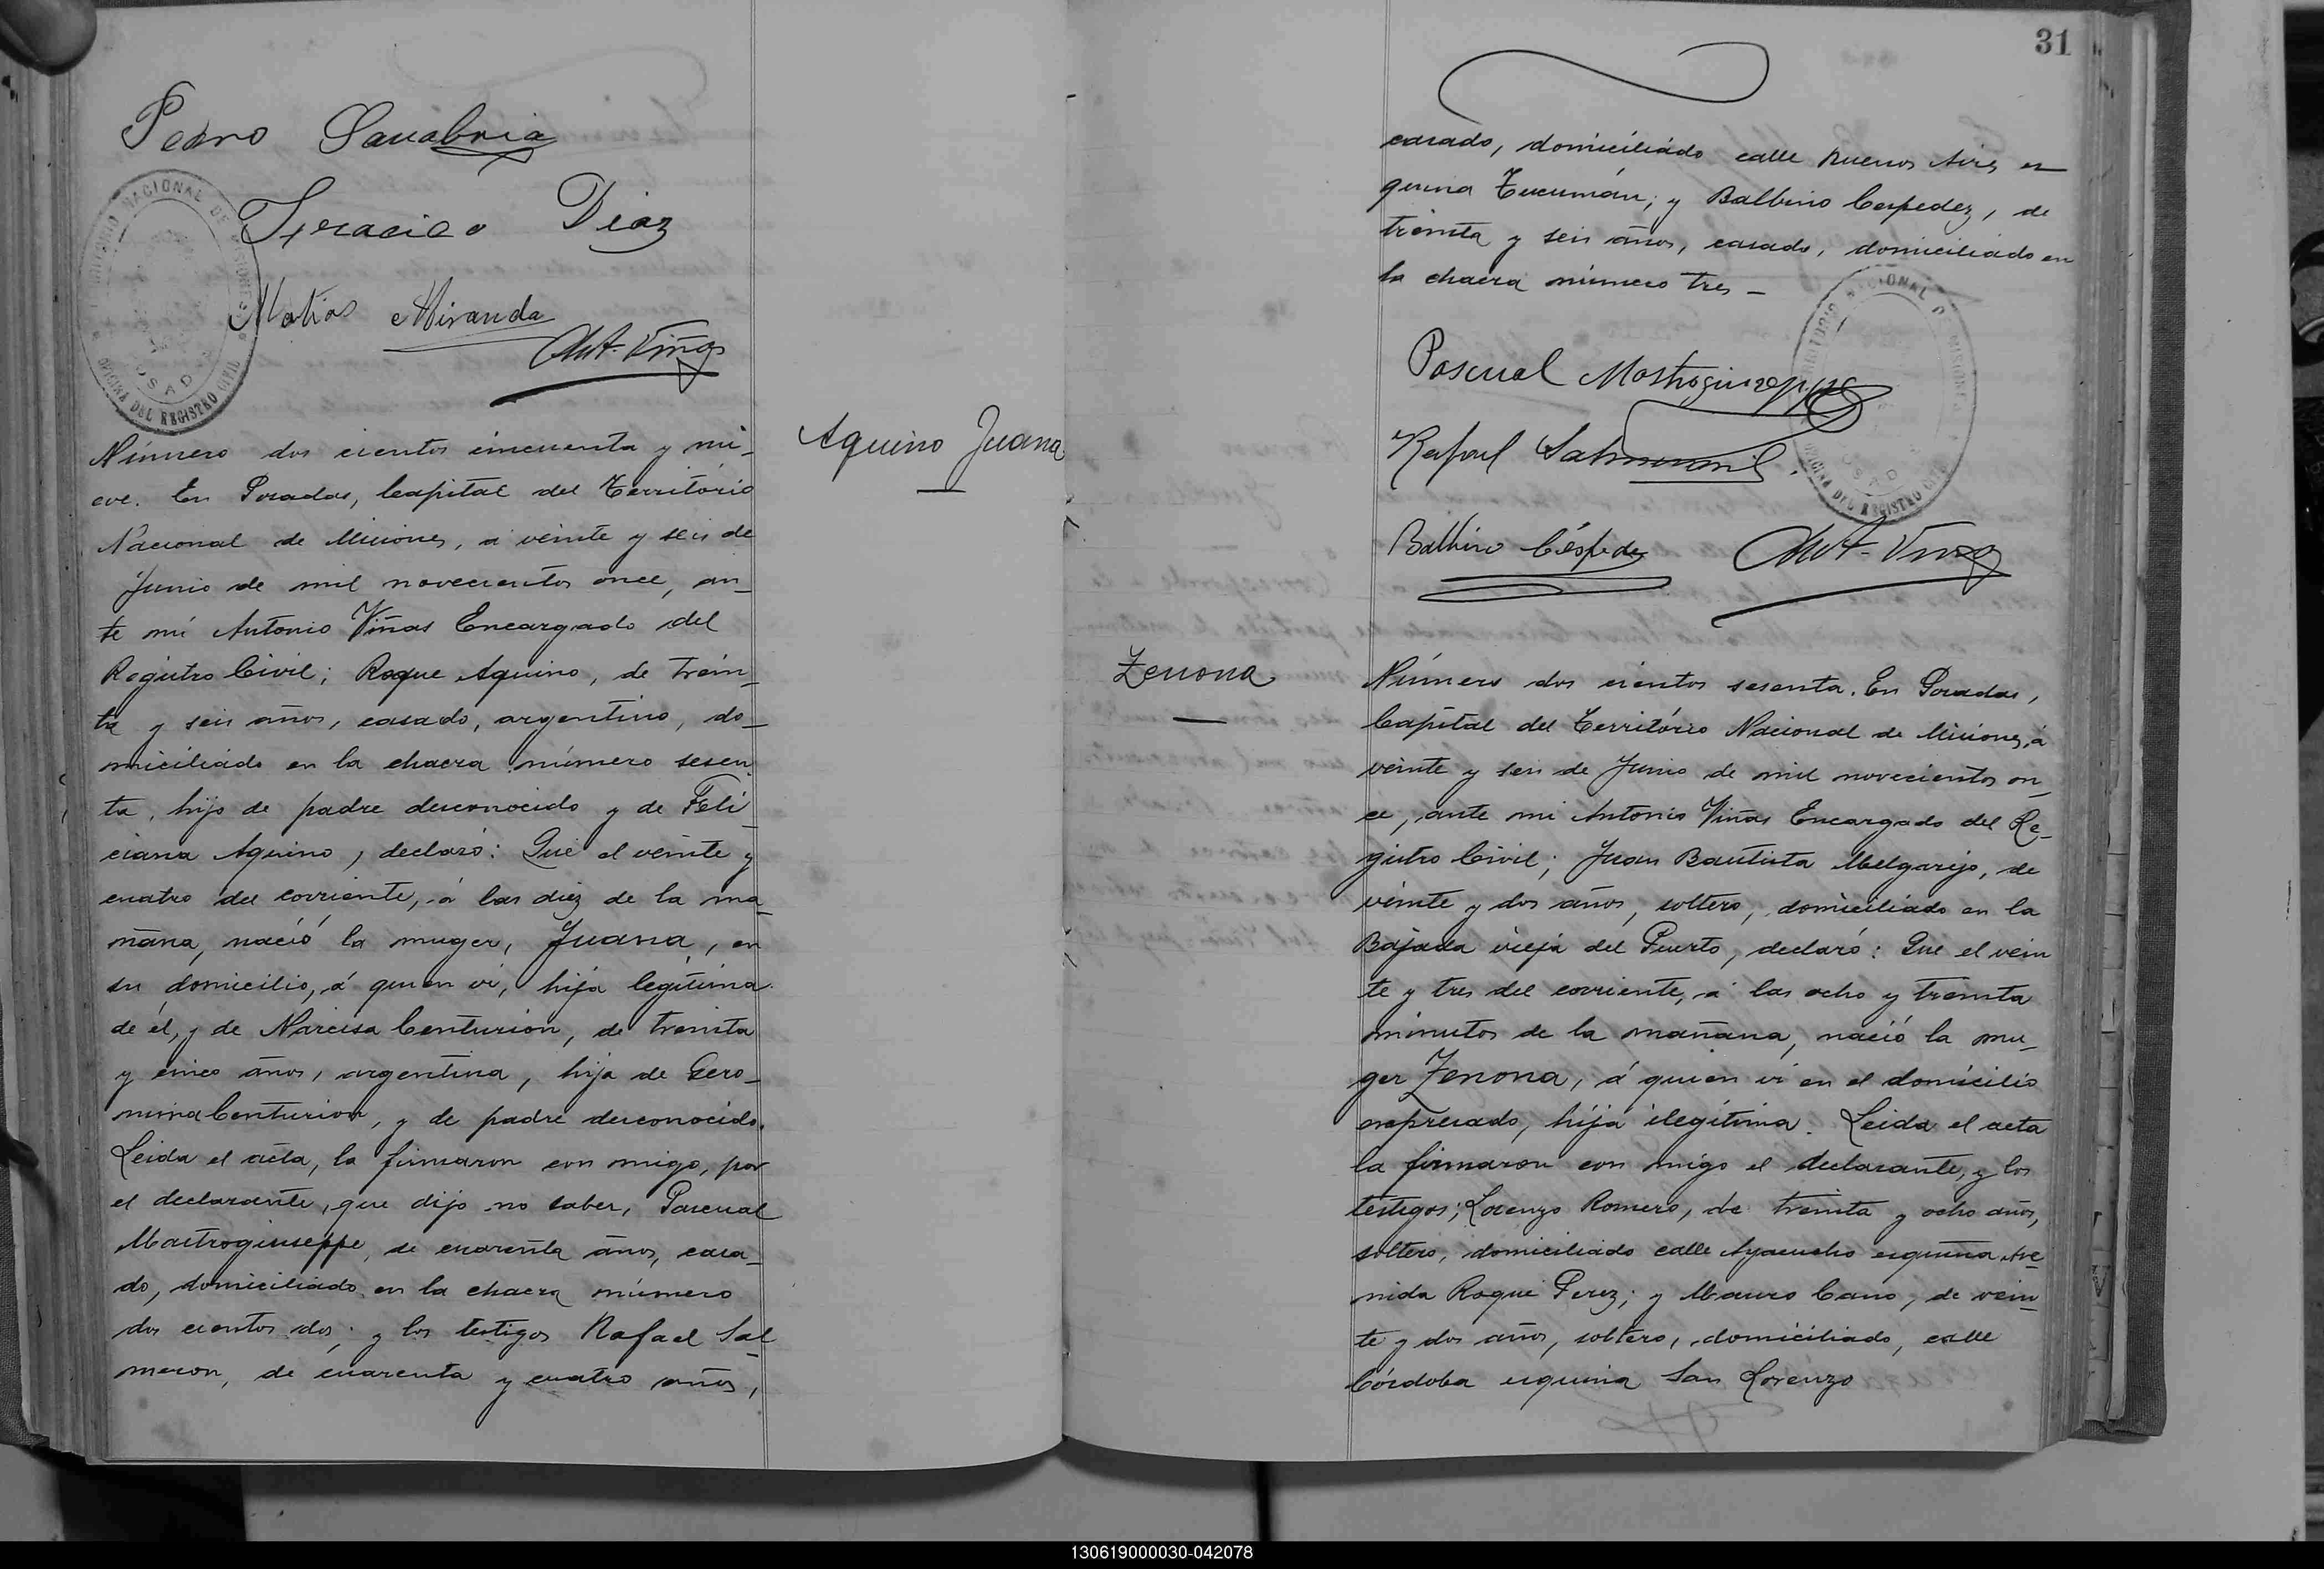 Pedro Sanabria
Graciano Diaz
Matias Miranda
Ant. Viñas
TERRITORIO NACIONAL DE MISIONES
POSADAS
OFICINA DEL REGISTRO CIVIL
Aquino Juana
Número dos cientos cincuenta y nu-
eve. En Posadas, Capital del Território
Nacional de Misiones, á veinte y seis de
Junio de mil novecientos once, an-
te mí Antonio Viñas Encargado del
Registro Civil; Roque Aquino, de trein-
ta y seis años, casado, argentino, do-
miciliado en la chacra número sesen
ta, hijo de padre desconocido y de Feli-
ciana Aquino, declaró: Que el veinte y
cuatro del corriente, á las diez de la ma-
ñana, nació la muger, Juana, en
su domicilio, á quien vi, hija legítima
de él, y de Narcisa Centurion, de treinta
y cinco años, argentina, hija de Gero-
nima Centurion, y de padre desconocido.
Leida el acta, la firmaron con migo, por
el declarante, que dijo no saber, Pascual
Mastrogiuseppe, de cuarenta años, casa-
do, domiciliado en la chacra número
dos cientos dos; y los testigos Rafael Sal-
meron, de cuarenta y cuatro años,
31
casado, domiciliado calle Buenos Aires es-
quina Tucumán; y Balbino Cespedez, de
treinta y seis años, casado, domiciliado en
la chacra número tres -
TERRITORIO NACIONAL DE MISIONES
POSADAS
OFICINA DEL REGISTRO CIVIL
Pascual Mastrogiuseppe
Rafael Salmeron
Balbino Céspedez Ant. Viñas
Zenona
Número dos cientos sesenta. En Posadas,
Capital del Território Nacional de Misiones, á
veinte y seis de Junio de mil novecientos on-
ce, ante mi Antonio Viñas Encargado del Re-
gistro Civil; Juan Bautista Melgarejo, de
veinte y dos años, soltero, domiciliado en la
Bajada vieja del Puerto, declaró: Que el vein
te y tres del corriente, á las ocho y treinta
minutos de la mañana, nació la mu-
ger Zenona, á quien vi en el domicilio
expresado, hija ilegítima. Leida el acta
la firmaron con migo el declarante, y los
testigos; Lorenzo Romero, de treinta y ocho años,
soltero, domiciliado calle Ayacucho esquina Ave-
nida Roque Perez; y Mauro Cano, de vein-
te y dos años, soltero, domiciliado, calle
Córdoba esquina San Lorenzo
130619000030-042078